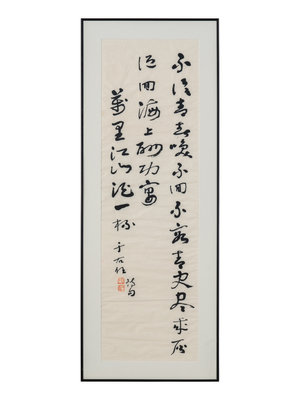 不信青春喚不回不容青史盡成灰
低回海上酬功宴
萬里江山酒一杯 于右任